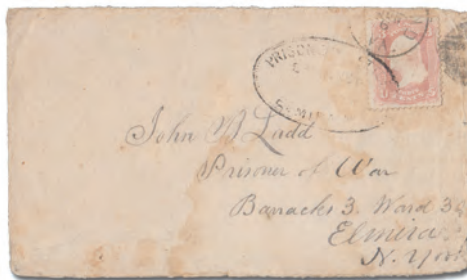 PRISON
John W Ladd
Prisoner of War
Barracks 3. Ward 39
Elmira
N. York